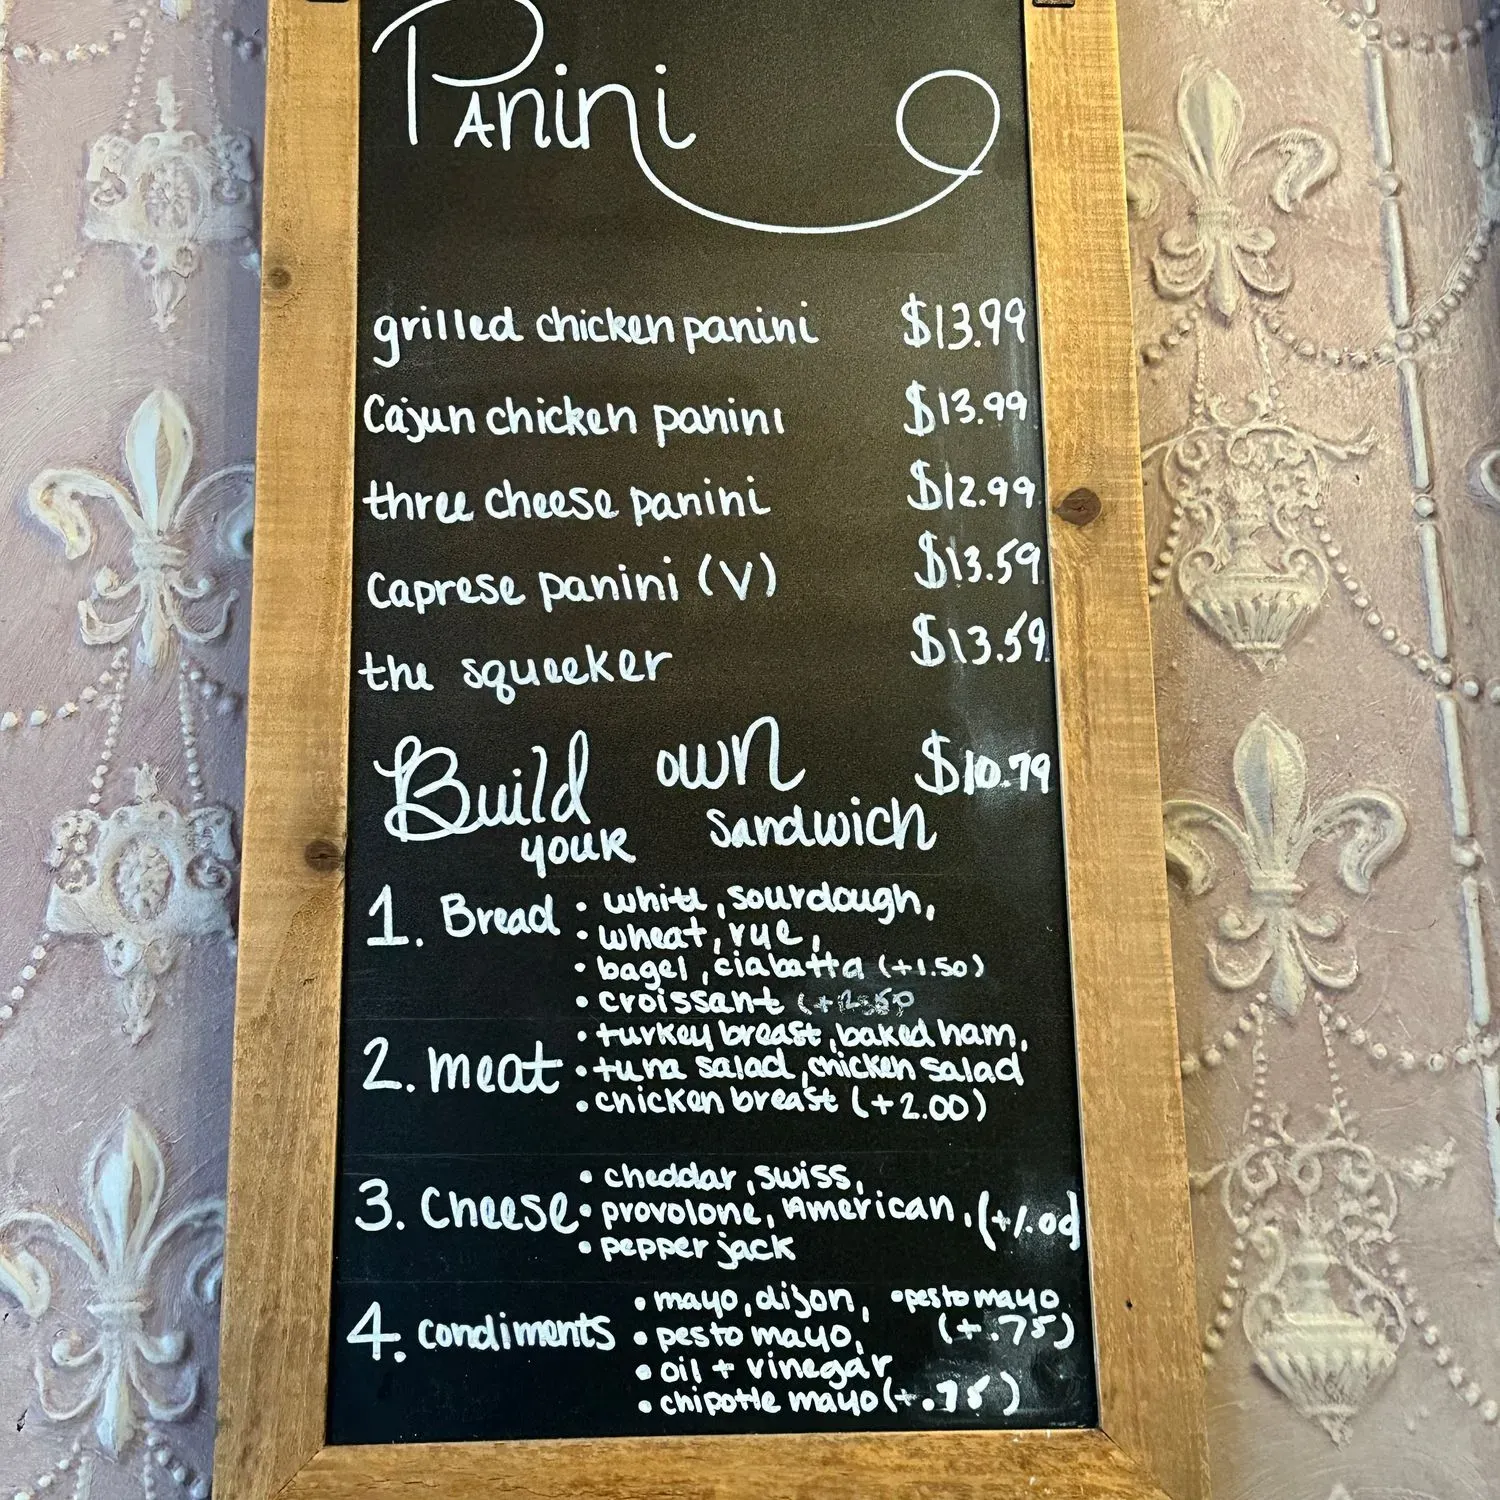 Panini
grilled chicken panini $13.99
Cajun chicken panini $13.99
three cheese panini $12.99
Caprese panini (V) $13.59
the squeeker $13.59
Build your own sandwich $10.79
1. Bread • white, sourdough,
• wheat, rye,
• bagel, ciabatta (+1.50)
• croissant
2. meat • turkey breast, baked ham,
• tuna salad, chicken salad
• chicken breast (+2.00)
3. Cheese • cheddar, swiss,
• provolone, American, (+1.00)
• pepper jack
4. condiments • mayo, dijon, • pesto mayo
• pesto mayo, (+.75)
• oil + vinegar
• chipotle mayo (+.75)